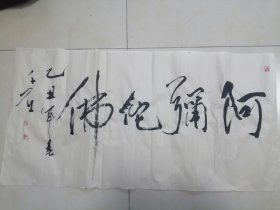 阿彌陀佛
乙丑年春